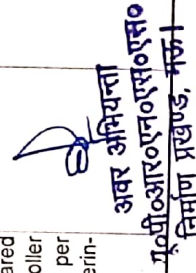 ared
oller
per
erin-
अवर अभियन्ता
यू०पी०आर०एन०एस०एस०
निर्माण प्रखण्ड, मऊ।